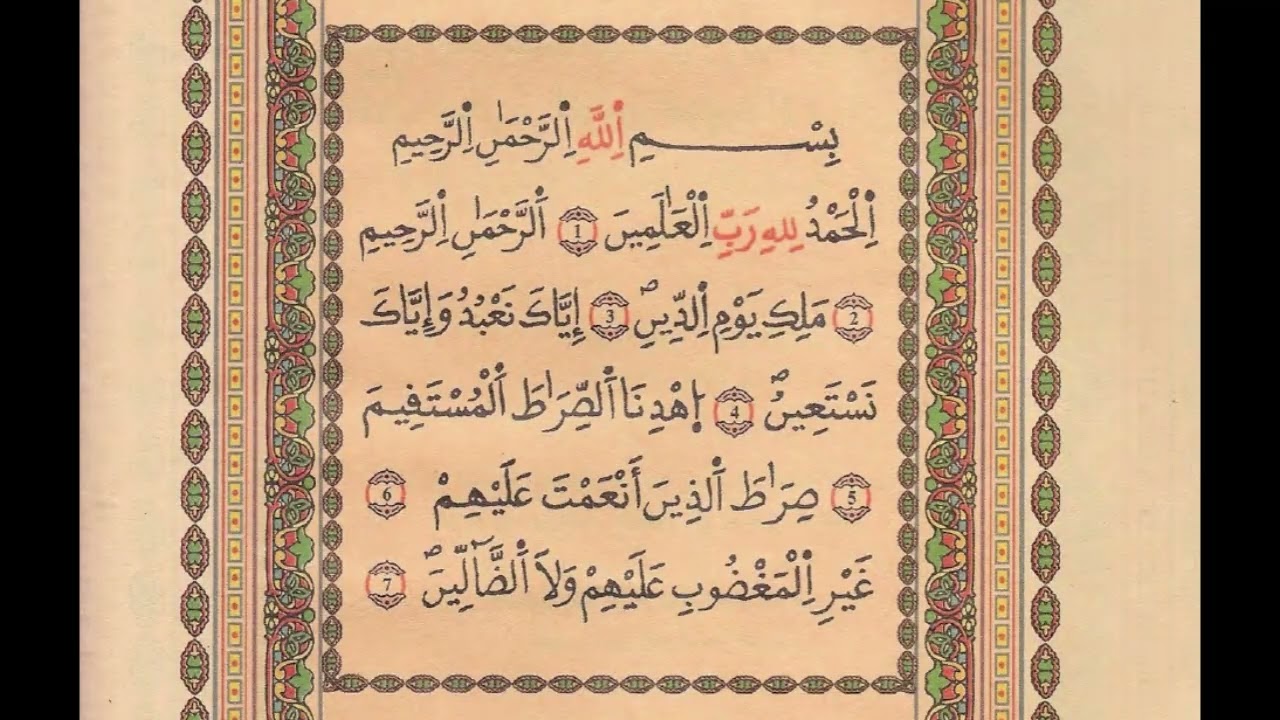 بِسْــــــــمِ اِ۬للَّهِ اِ۬لرَّحْمَٰنِ اِ۬لرَّحِيمِ
اِ۬لْحَمْدُ لِلهِ رَبِّ اِ۬لْعَٰلَمِينَ 1 اَ۬لرَّحْمَٰنِ اِ۬لرَّحِيمِ
2 مَلِكِ يَوْمِ اِ۬لدِّينِۖ 3 إِيَّاكَ نَعْبُدُ وَإِيَّاكَ
نَسْتَعِينُۖ 4 اِ۪هْدِنَا اَ۬لصِّرَٰطَ اَ۬لْمُسْتَفِيمَ
5 صِرَٰطَ اَ۬لذِينَ أَنْعَمْتَ عَلَيْهِمْ 6
غَيْرِ اِ۬لْمَغْضُوبِ عَلَيْهِمْ وَلَا اَ۬لضَّآلِّينَۖ 7